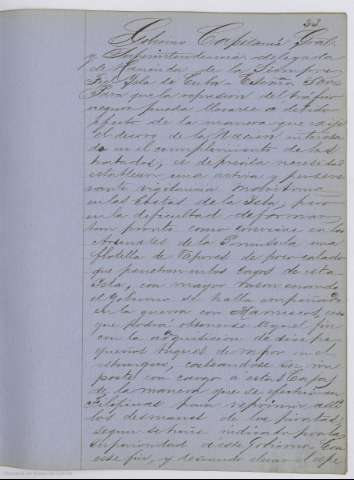 53
Gobierno Capitanía Gral
y Superintendencia delegada
de Hacienda de la Siempre
Fiel Isla de Cuba Escmo Sor
Para que la represion del tráfico
negrero pueda llevarse a debido
efecto de la manera que exije
el decoro de la Nacion interesa
da en el cumplimiento de los
tratados, es de precisa necesidad
establecer una activa y perseve
rante vigilancia marítima
en las Costas de la Isla, pero
en la dificultad de formar
tan pronto como conviene en los
Arsenales de la Peninsula una
flotilla de Vapores de poco calado
que penetren en los Cayos de esta
Isla, con mayor razon cuando
el Gobierno se halla empeñado
en la guerra con Marruecos, creo
que podria obtenerse aquel fin
con la adquisicion de diez pe
queños buques de vapor en el
estrangero, costeandose su im
porte con cargo a estas Cajas,
de la manera que se efectuó en
Filipinas para reprimir allí
los desmanes de los piratas,
segun se tiene indicado por la
superioridad a este Gobierno. Con
ese fin, y deseando elevar el espe